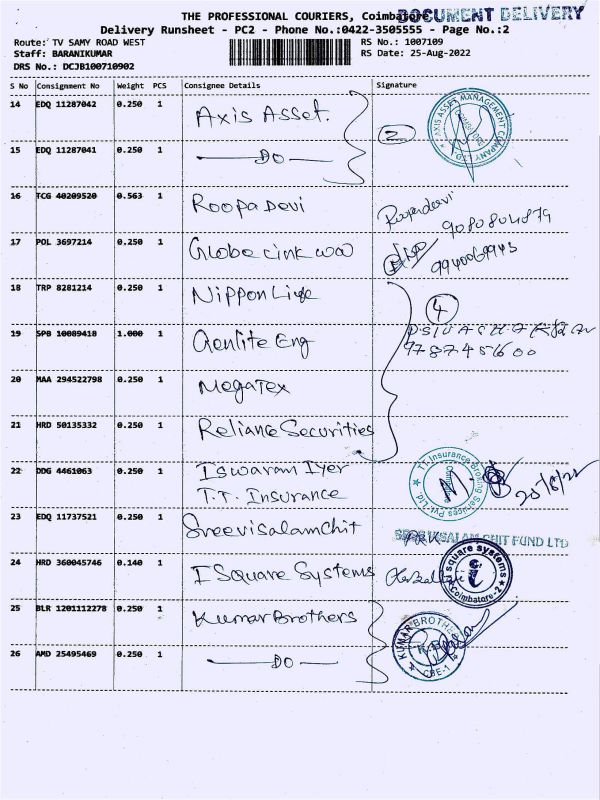 THE PROFESSIONAL COURIERS, Coimbatore
DOCUMENT DELIVERY
Delivery Runsheet - PC2 - Phone No.:0422-3505555 - Page No.:2
Route: TV SAMY ROAD WEST
RS No.: 1007109
Staff: BARANIKUMAR
RS Date: 25-Aug-2022
DRS No.: DCJB100710902
S No Consignment No Weight PCS Consignee Details Signature
14 EDQ 11287042 0.250 1 Axis Asset. 2
AXIS ASSET MANAGEMENT COMPANY LTD
15 EDQ 11287041 0.250 1 DO
16 TCG 40209520 0.563 1 Roopa Devi Roopadevi
9080804879
17 POL 3697214 0.250 1
9940069945
18 TRP 8281214 0.250 1 Nippon Life 4
19 SPB 10089418 1.000 1 Genlite Eng
9787451600
20 MAA 294522798 0.250 1 Megatex
21 HRD 50135332 0.250 1 Reliance Securities
22 DDG 4461063 0.250 1 Iswaram Iyer
T.T. Insurance
T.T. Insurance Broking Services Pvt. Ltd
23 EDQ 11737521 0.250 1 Sreevisalamchit
CHIT FUND LTD
24 HRD 360045746 0.140 1 I Square Systems
i square systems
Coimbatore-2
25 BLR 1201112278 0.250 1 Kumar Brothers
KUMAR BROTHERS
CBE-1
26 AMD 25495469 0.250 1 DO